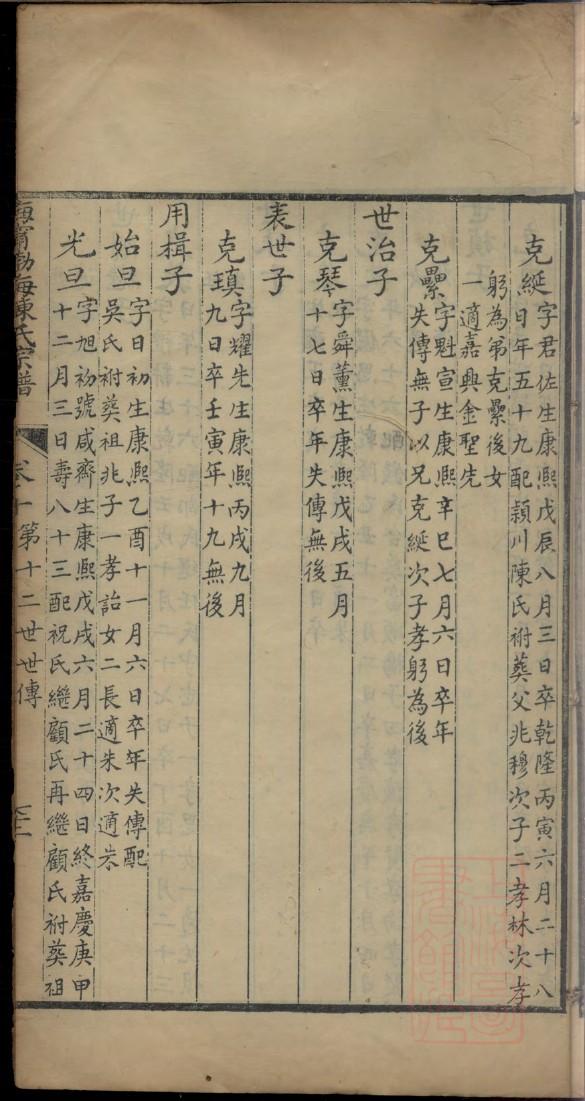 克綖字君佐生康熙戊辰八月三日卒乾隆丙寅六月二十八
日年五十九配潁川陳氏祔葬父兆穆次子二孝林次孝
躬為弟克纍後女
一適嘉興金聖先
克纍字魁宣生康熙辛巳七月六日卒年
失傳無子以兄克綖次子孝躬為後
世治子
克琴字舜薰生康熙戊戌五月
十七日卒年失傳無後
表世子
克瑱字耀先生康熙丙戌九月
九日卒壬寅年十九無後
用楫子
始旦字日初生康熙乙酉十一月六日卒年失傳配
吳氏祔葬祖兆子一孝詒女二長適朱次適朱
光旦字旭初號咸齋生康熙戊戌六月二十四日終嘉慶庚申
十二月三日壽八十三配祝氏繼顧氏再繼顧氏祔葬祖
海寧渤海陳氏宗譜 卷十第十二世世傳